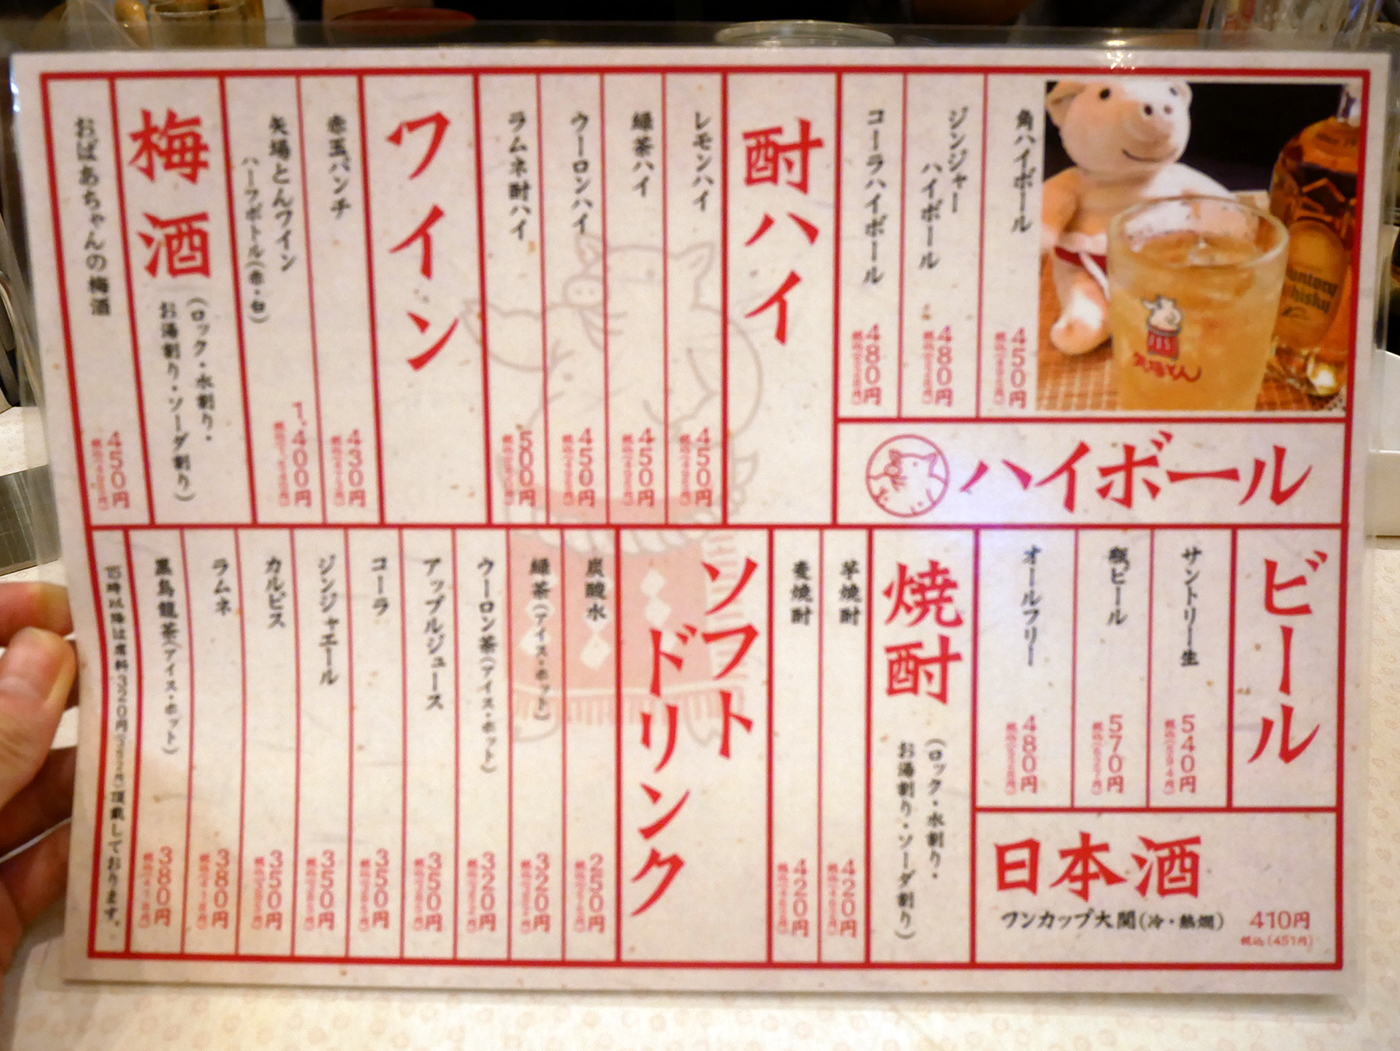 ハイボール
角ハイボール 450円
ジンジャーハイボール 480円
コーラハイボール 480円
Suntory
Whisky
矢場とん
酎ハイ
レモンハイ 450円
緑茶ハイ 450円
ウーロンハイ 450円
ラムネ酎ハイ 500円
ワイン
赤玉パンチ 430円
矢場とんワイン
ハーフボトル(赤・白) 1,400円
梅酒
(ロック・水割り・
お湯割り・ソーダ割り)
おばあちゃんの梅酒 450円
ビール
サントリー生 540円
税込(594円)
瓶ビール 570円
税込(627円)
オールフリー 480円
税込(528円)
日本酒
ワンカップ大関(冷・熱燗) 410円
税込(451円)
焼酎
(ロック・水割り・
お湯割り・ソーダ割り)
芋焼酎 420円
麦焼酎 420円
ソフト
ドリンク
炭酸水 250円
緑茶(アイス・ホット) 320円
ウーロン茶(アイス・ホット) 320円
アップルジュース 350円
コーラ 350円
ジンジャエール 350円
カルピス 350円
ラムネ 380円
黒烏龍茶(アイス・ホット) 380円
15時以降は有料320円(352円)頂戴しております。